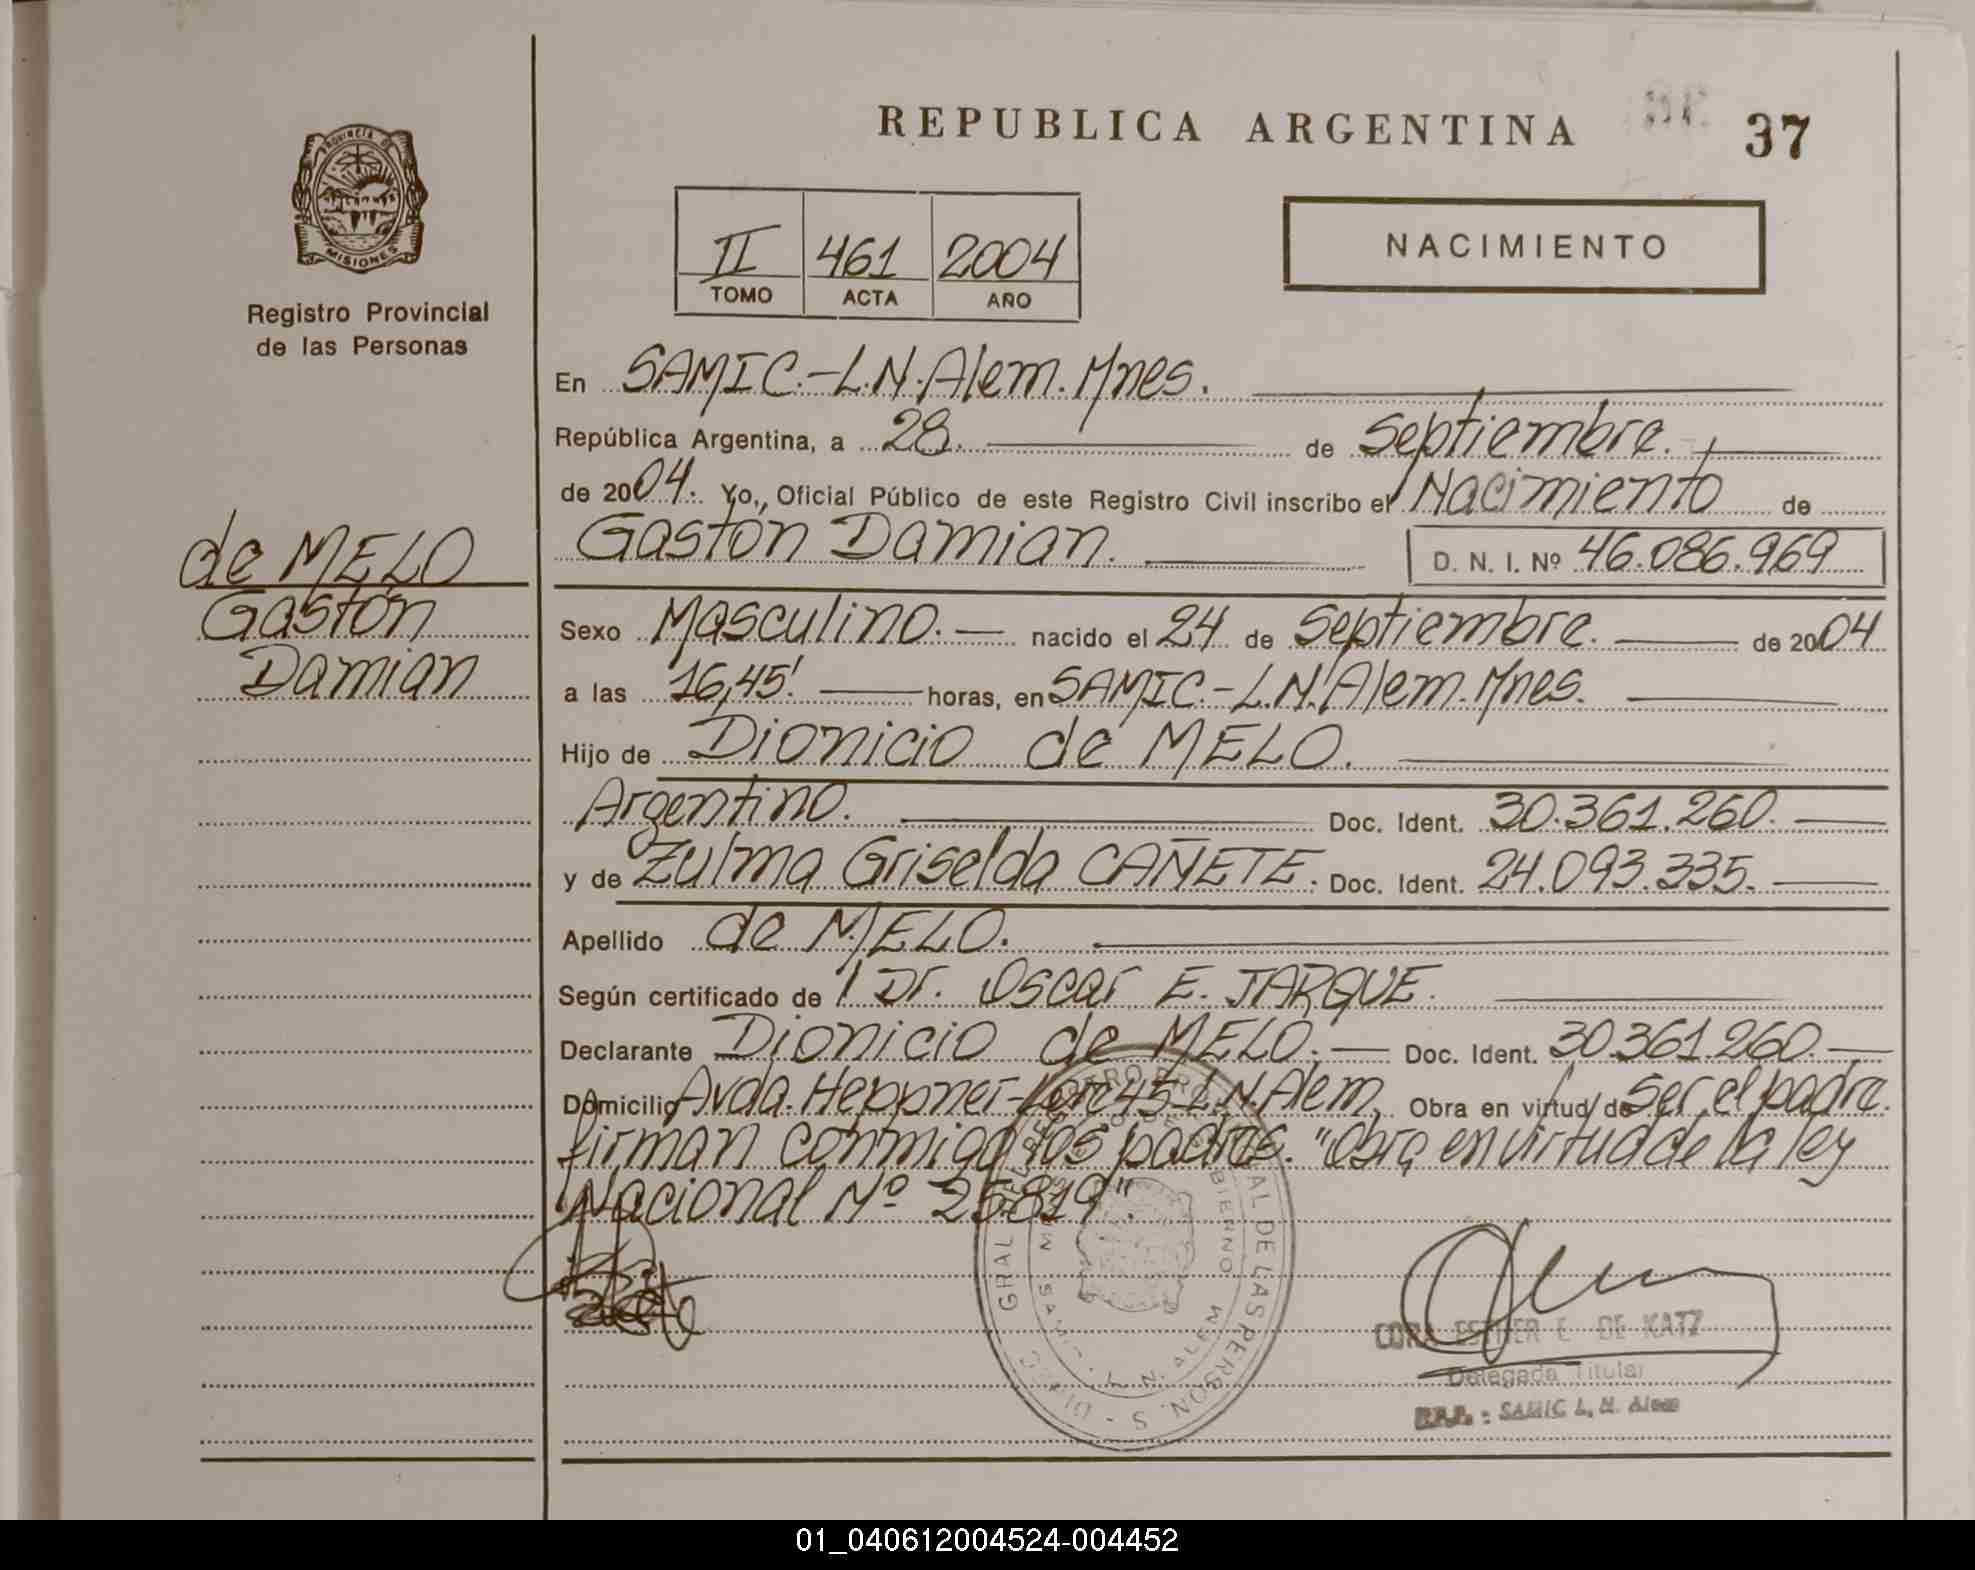 REPUBLICA ARGENTINA 37
PROVINCIA DE
MISIONES
Registro Provincial
de las Personas
II 461 2004
TOMO ACTA AÑO
NACIMIENTO
En SAMIC.-L.N.Alem.Mnes.
República Argentina, a 28. de Septiembre.
de 2004. Yo, Oficial Público de este Registro Civil inscribo el Nacimiento de
Gastón Damian. D. N. I. Nº 46.086.969
de MELO
Gastón
Damian
Sexo Masculino. nacido el 24 de Septiembre. de 2004
a las 16,45' horas, en SAMIC.-L.N.Alem.Mnes.
Hijo de Dionicio de MELO.
Argentino. Doc. Ident. 30.361.260.
y de Zulma Griselda CAÑETE. Doc. Ident. 24.093.335.
Apellido de MELO.
Según certificado de Dr. Oscar E. JARQUE.
Declarante Dionicio de MELO. Doc. Ident. 30.361.260.
Domicilio Avda. Heppner-Lote 45-L.N.Alem. Obra en virtud de Ser el padre.
firman conmigo los padres. "Obra en virtud de la ley
Nacional Nº 25819".
CORA ESTHER E. DE KATZ
Delegada Titular
R.P.P.: SAMIC L. N. Alem
01_040612004524-004452